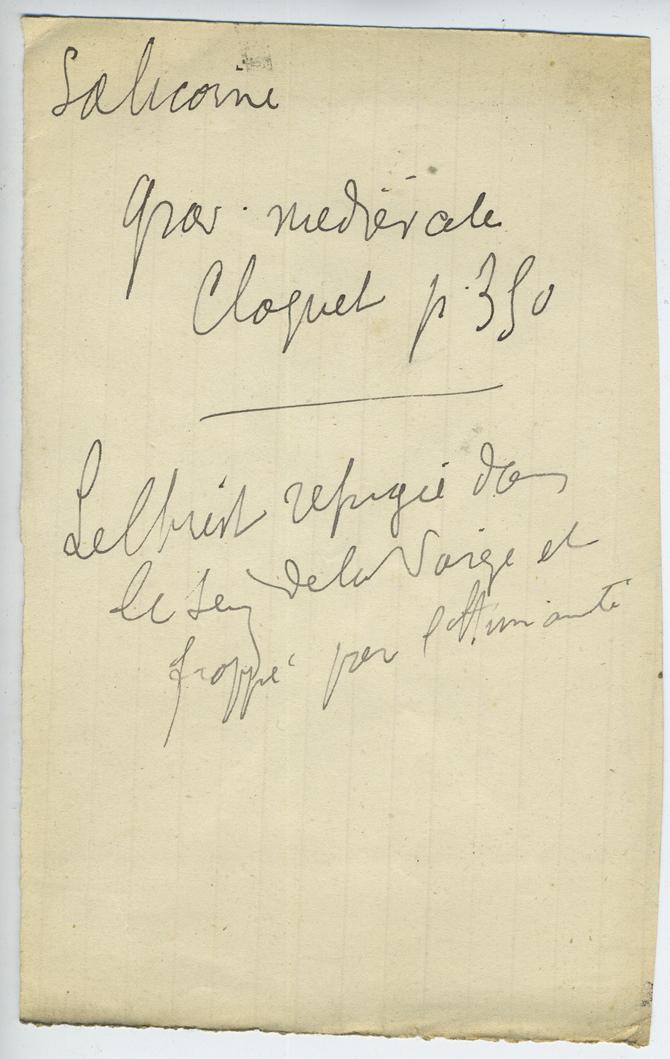 La licorne
grav. médiévale
Cloquet p. 350
Le Christ réfugié dans
le sein de la Vierge et
frappé par l'Humanité